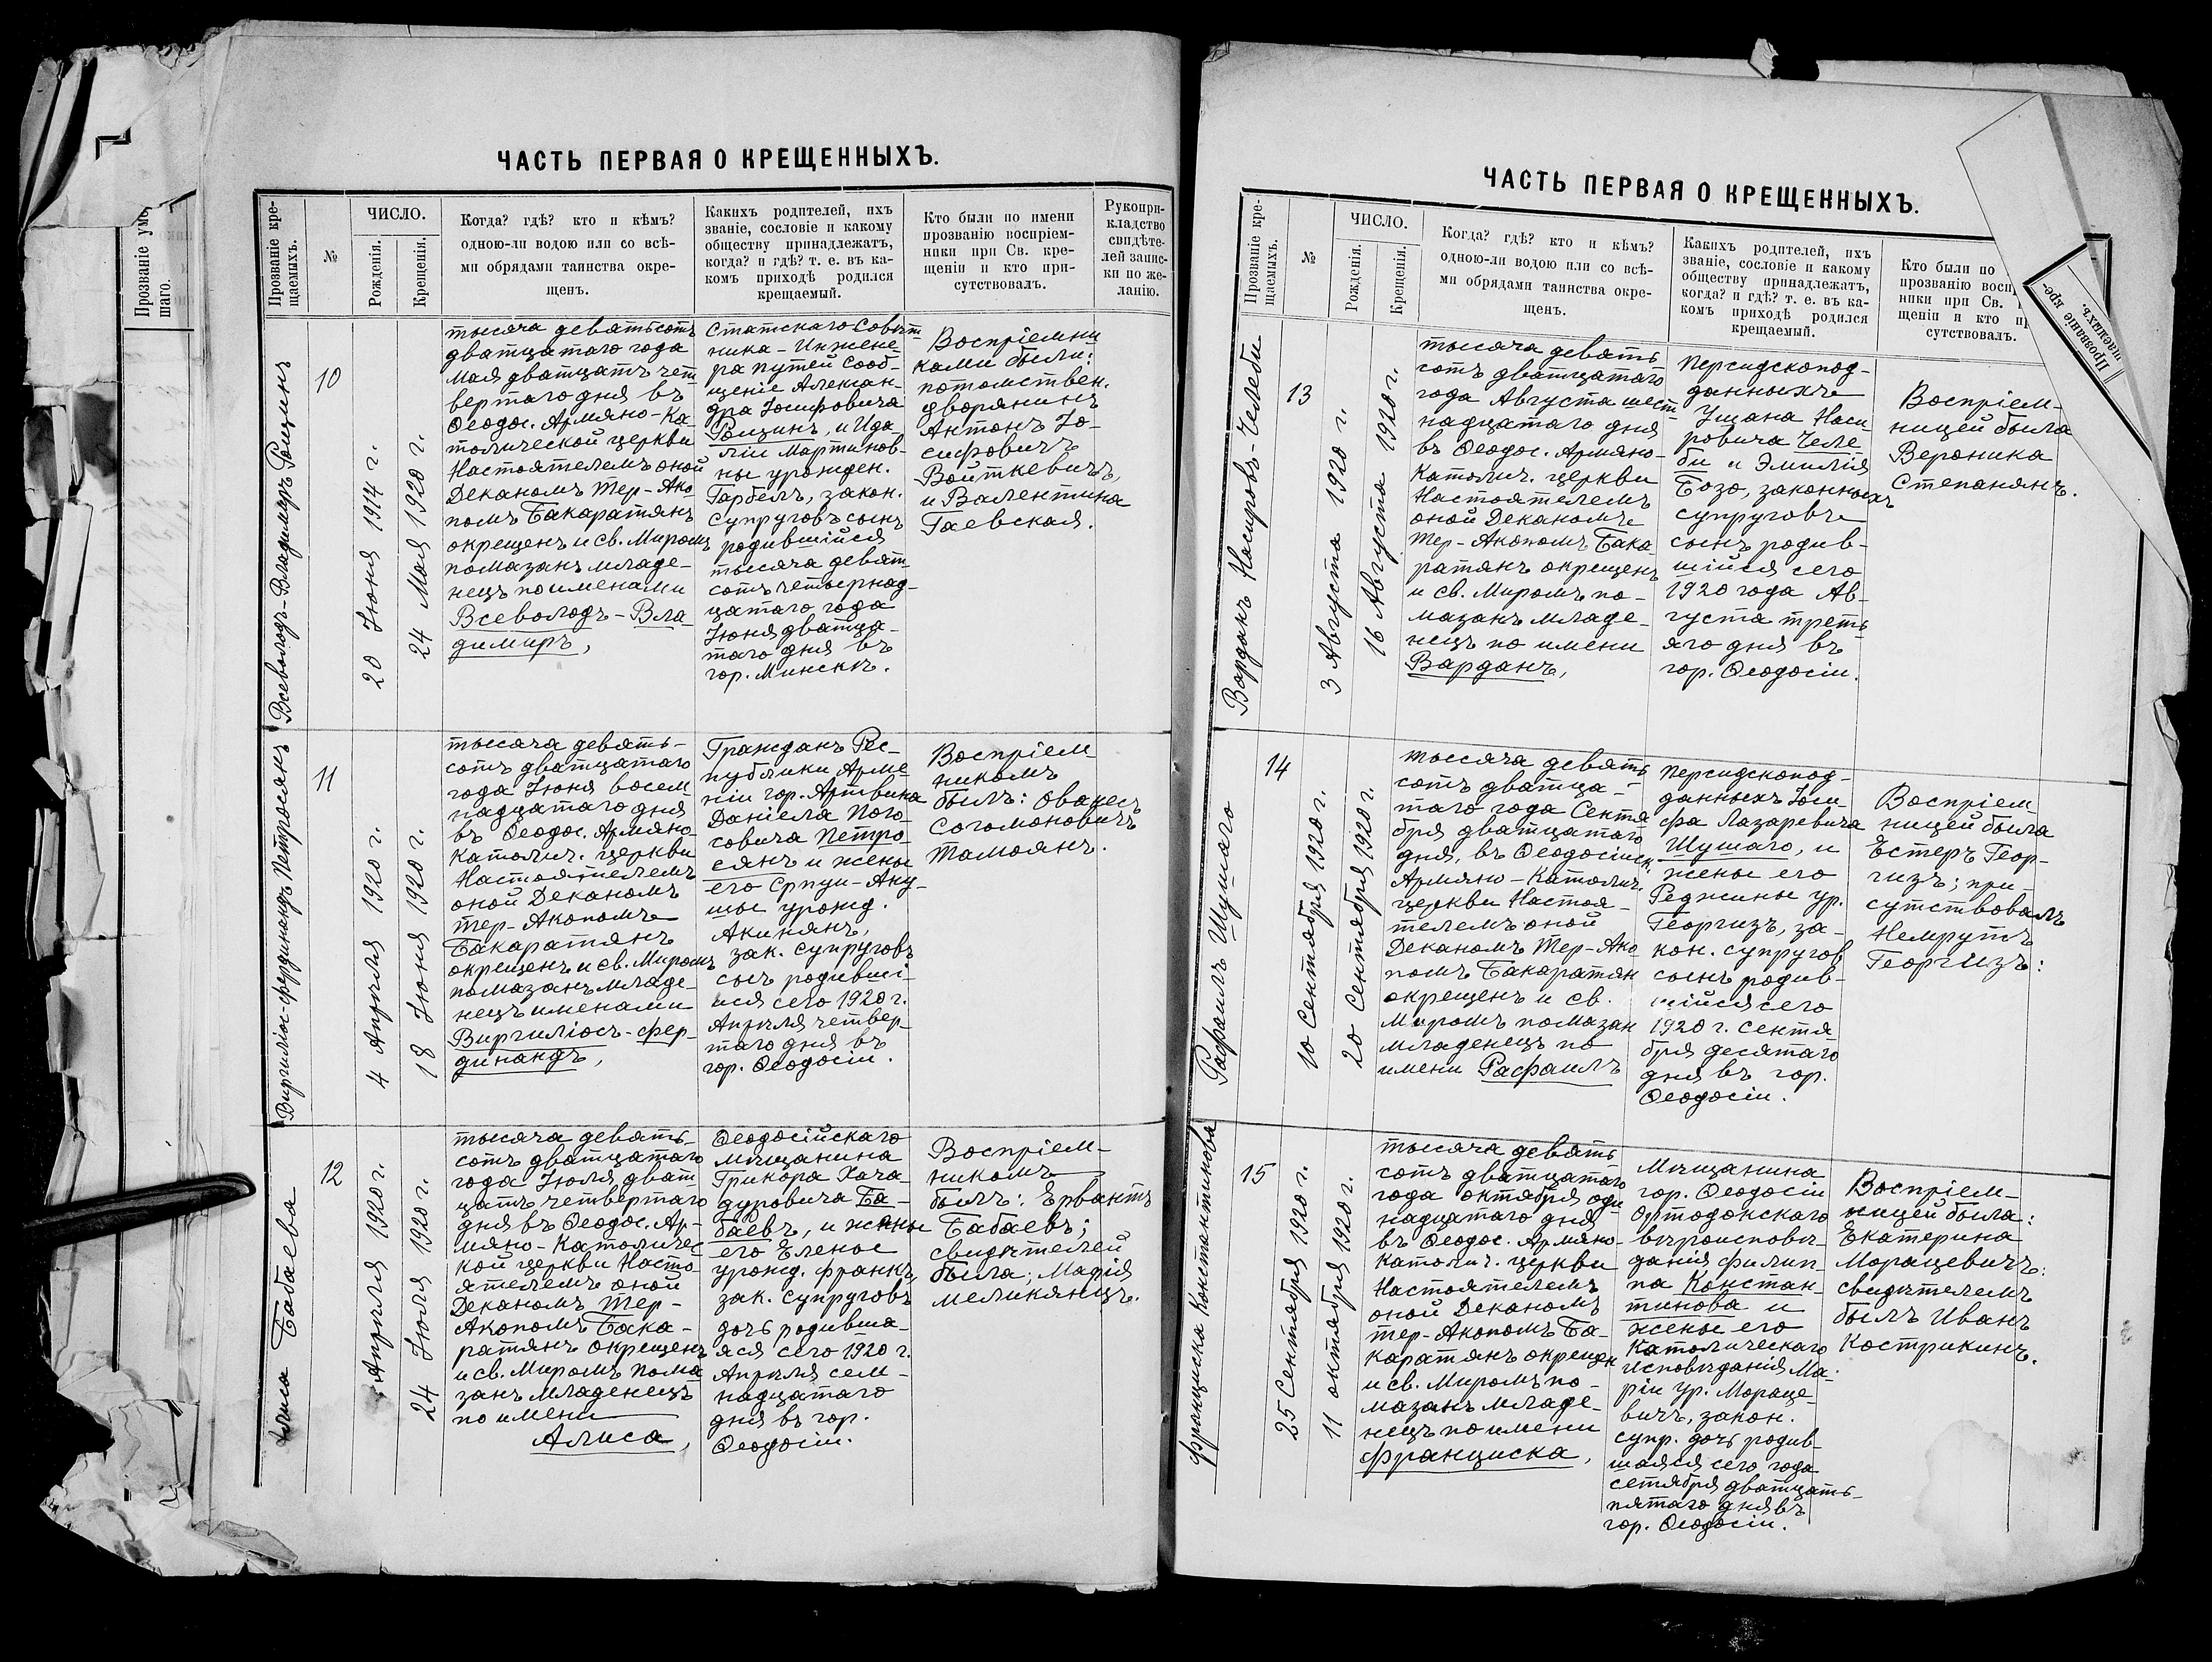 Прозваніе уме
шаго.
ЧАСТЬ ПЕРВАЯ О КРЕЩЕННЫХЪ.
Прозваніе кре-
щаемыхъ.
№
ЧИСЛО.
Рожденія.
Крещенія.
Когда? гдѣ? кто и кѣмъ?
одною-ли водою или со всѣ-
ми обрядами таинства окре-
щенъ.
Какихъ родителей, ихъ
званіе, сословіе и какому
обществу принадлежатъ,
когда? и гдѣ? т. е. въ ка-
комъ приходѣ родился
крещаемый.
Кто были по имени
прозванію воспріем-
ники при Св. кре-
щеніи и кто при-
сутствовалъ.
Рукопри-
кладство
свидѣте-
лей запис-
ки по же-
ланію.
Всеволодъ-Владимиръ Рощинъ
10
20 Іюня 1914 г.
24 Мая 1920 г.
тысяча девятьсотъ
дватцатаго года
Мая дватцать чет
вертаго дня въ
Ѳеодос. Армяно-Ка-
толической церкви
Настоятелемъ оной
Деканомъ Тер-Ако-
помъ Бакаратянъ
окрещенъ и св. Миромъ
помазанъ младе-
нецъ по именами
Всеволодъ-Вла-
димиръ,
Статскаго Совѣт
ника-Инжене-
ра путей Сооб-
щеніе Алексан-
дра Іосифовича
Рощинъ, и Ида-
ліи Мартинов-
ны урожден.
Гарбель, закон.
Супруговъ сынъ
родившійся
тысяча девят-
сотъ четырнад-
цатаго года
Іюня дватца-
таго дня въ
гор. Минскѣ.
Воспріемни
ками были:
потомствен.
дворянинъ
Антонъ Іо-
сифовичъ
Войткевичъ,
и Валентина
Гаевская.
Виргиліос-Фердинандъ Петросянъ
11
4 Апрѣля 1920 г.
18 Іюня 1920 г.
тысяча девять-
сотъ дватцатаго
года Іюня восем
надцатаго дня
въ Ѳеодос. Армяно-
Католич. церкви
Настоятелемъ
оной Деканомъ
Тер-Акопомъ
Бакаратянъ
окрещенъ и св. Миромъ
помазанъ младе-
нецъ именами
Виргиліосъ-Фер-
динандъ,
Гражданъ Рес-
публики Арме-
ніи гор. Артвина
Даніела Пого-
совича Петро-
сянъ и жены
его Српуи-Аку-
шы урожд.
Акинянъ,
зак. супруговъ
сынъ родивші-
йся сего 1920 г.
Апрѣля четвер-
таго дня въ
гор. Ѳеодосіи.
Воспріем-
никомъ
былъ: Ованесъ
Согомоновичъ
Тамоянъ.
Алиса Бабаева
12
Апрѣля 1920 г.
24 Іюля 1920 г.
тысяча девять-
сотъ дватцатаго
года Іюля, дват
цать четвертаго
дня въ Ѳеодос. Ар-
мяно-Католичес
кой церкви Насто-
ятелемъ оной
Деканомъ Тер-
Акопомъ Бака-
ратянъ окрещенъ
и св. Миромъ пома
занъ младенецъ
по имени
Алиса,
Ѳеодосійскаго
мѣщанина
Грикора Хача-
дуровича Ба-
баевъ, и жены
его Елены
урожд. Франкъ,
зак. супруговъ
дочь родивша-
яся сего 1920 г.
Апрѣля сем-
надцатаго
дня въ гор.
Ѳеодосіи.
Воспріем-
никомъ
былъ: Ервантъ
Бабаевъ;
свидѣтелей
была; Марія
меликянцъ.
ЧАСТЬ ПЕРВАЯ О КРЕЩЕННЫХЪ.
Прозваніе кре-
щаемыхъ.
№
ЧИСЛО.
Рожденія.
Крещенія.
Когда? гдѣ? кто и кѣмъ?
одною-ли водою или со всѣ-
ми обрядами таинства окре-
щенъ.
Какихъ родителей, ихъ
званіе, сословіе и какому
обществу принадлежатъ,
когда? и гдѣ? т. е. въ ка-
комъ приходѣ родился
крещаемый.
Кто были по
прозванію воспр
ники при Св.
щеніи и кто пр
сутствовалъ.
Прозваніе кре-
щаемыхъ.
Варданъ Насировъ-Челеби
13
3 Августа 1920 г.
16 Августа 1920 г.
тысяча девять
сотъ дватцатаго
года Августа шест
надцатаго дня
въ Ѳеодос. Армяно-
Католич. церкви
Настоятелемъ
оной Деканомъ
Тер-Акопомъ Бака-
ратянъ окрещенъ
и св. Миромъ по-
мазанъ младе-
нецъ по имени
Варданъ,
Персидскопод-
данныхъ
Ушана Наси-
ровича Челе-
би и Эмилія
Бозо, законныхъ
супруговъ
сынъ родив-
шійся сего
1920 года Ав-
густа треть-
яго дня въ
гор. Ѳеодосіи.
Воспріем-
ницей была
Вероника
Степанянъ.
Рафаилъ Шушаго
14
10 Сентября 1920 г.
20 Сентября 1920 г.
тысяча девять
сотъ дватца-
таго года Сентя
бря дватцатаго
дня, въ Ѳеодосійск.
Армяно-Католич.
церкви Настоя-
телемъ оной
Деканомъ Тер-Ако
помъ Бакаратян
окрещенъ и св.
Миромъ помазан
младенецъ по
имени Рафаилъ
Персидскопод-
данныхъ Іоси-
фа Лазаревича
Шушаго, и
жены его
Реджины ур.
Георгизъ, за-
кон. супругов
сынъ родив-
шійся сего
1920 г. Сентя
бря десятаго
дня въ гор.
Ѳеодосіи.
Воспріем
ницей была
Естеръ Геор-
гизъ; при-
сутствовалъ
Немрутъ
Георгизъ:
Франциска Константинова
15
25 Сентября 1920 г.
11 октября 1920 г.
тысяча девять
сотъ дватцатаго
года октября оди
надцатаго дня
въ Ѳеодос. Армяно-
Католич. церкви
Настоятелемъ
оной Деканомъ
Тер-Акопомъ Ба-
каратянъ окрещен
и св. Миромъ по-
мазанъ младе-
нецъ по имени
Франциска,
Мѣщанина
гор. Ѳеодосіи
Ортодокскаго
вѣроисповѣ-
данія Филип-
па Констан-
тинова и
жены его
Католическаго
исповѣданія Ма-
ріи ур. Мораце-
вичъ, закон.
супр. дочь родив-
шаяся сего года
сетября дватцать-
пятаго дня въ
гор. Ѳеодосіи.
Воспріем-
ницей была:
Екатерина
Морацевичъ:
свидѣтелемъ
былъ Иванъ
Кострикинъ.